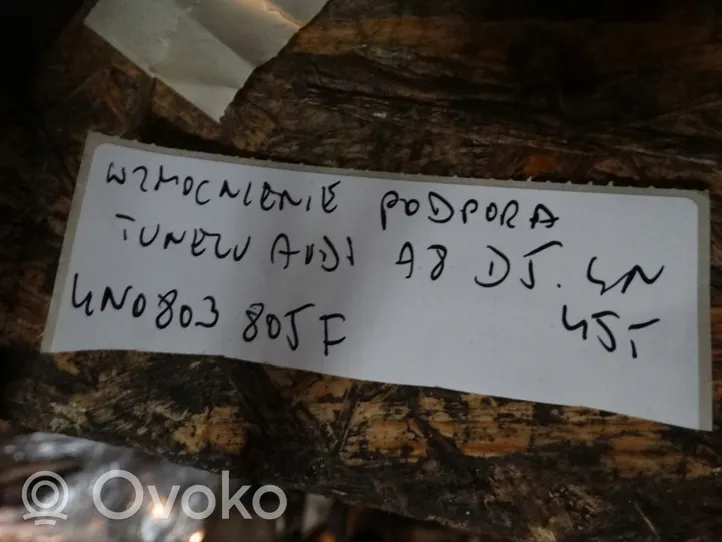 WZMOCNIENIE PODPORA
TUNELU AUDI A8 D5. 4N
4N0803 805F 45T
Ovoko